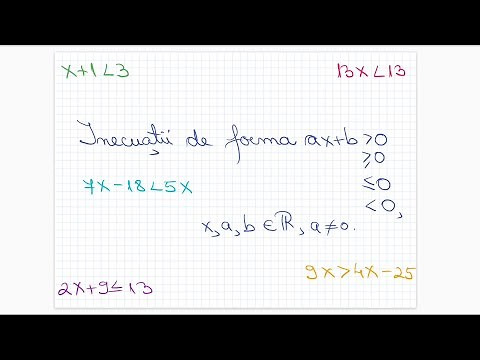 x+1<3
13x<13
Inecuații de forma ax+b >0
≥0
7x-18<5x
≤0
<0,
x,a,b∈ℝ, a≠0.
9x>4x-25
2x+9≤13